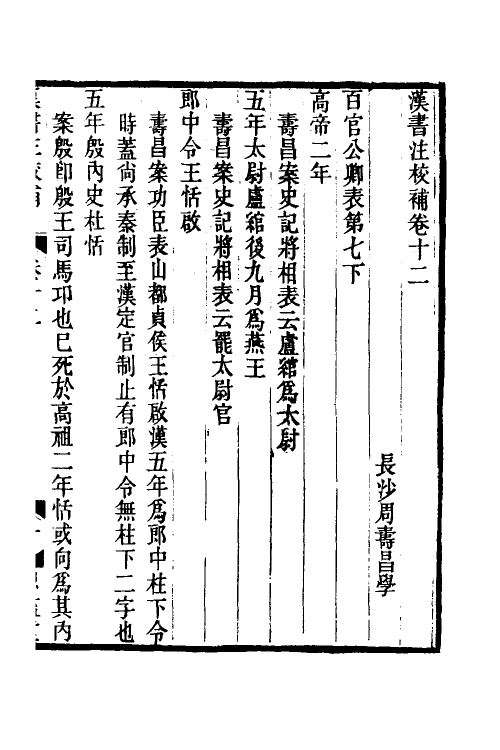 漢書注校補卷十二
長沙周壽昌學
百官公卿表第七下
高帝二年
壽昌案史記將相表云盧綰爲太尉
五年太尉盧綰後九月爲燕王
壽昌案史記將相表云罷太尉官
郎中令王恬啟
壽昌案功臣表山都貞侯王恬啟漢五年爲郎中柱下令
時蓋尚承秦制至漢定官制止有郎中令無柱下二字也
五年殷內史杜恬
案殷卽殷王司馬卬也已死於高祖二年恬或向爲其內